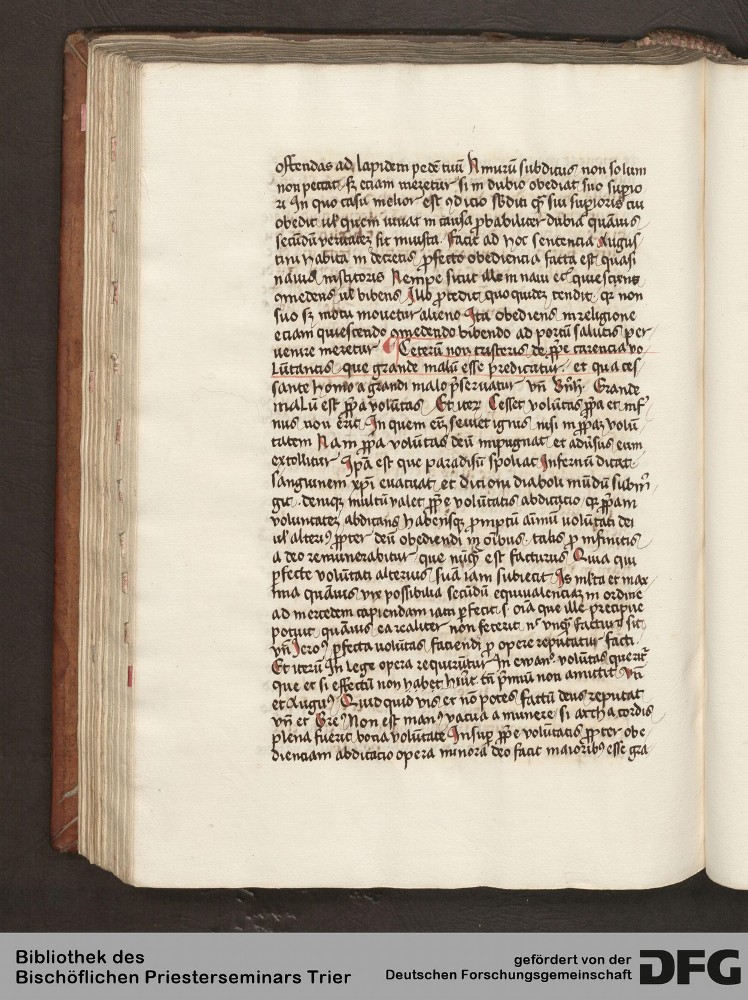 offendas ad lapidem pedē tuū Amurū subditus non solum
non peccat sz eciam meretur si in dubio obediat suo supio
ri In quo casu melior est ꝯdicio sbditi qͣ sui supioris cui
obedit ul quem iuuat in causa ꝓbabiliter dubia quāuis
secūdū veritatez sit iniusta. Facit ad hoc sentencia Augus
tini habita in decretis ꝓfecto obediencia facta est quasi
nauis institoris Nempe sicut ille in naui et quiescens
ꝯmedens ul bibens Illo ꝓcedit quo quidez tendit qr non
suo sz motu mouetur alieno Ita obediens in religione
eciam quiescendo ꝯmedendo bibendo ad portū salutis per
uenire meretur Ceterū non tristeris de ꝓpe carencia vo
lūntantis que grande malū esse predicatur et qua ces
sante homo a grandi malo pseruatur vn̄ Bn̄h Grande
malū est ꝓpa volūtas Et iterz Cesset volūtas ꝓpa et inf
nus non erit In quem eīz seuiet ignis nisi in ꝓpaz volū
tatem Nam ꝓpa volūtas deū impugnat et adūsus eum
extollitur Ipā est que paradisū spoliat Infernū ditat
sanguinem xpī euacuat et dicioni diaboli mūdū subiu
git. deniqz multū valet ꝓpe volūtatis abdicacio qr ꝓpam
voluntatez abdicans habensqz ꝓmptū aīmū volūtati dei
ul alteriꝰ ꝓpter deū obediendi in oībus talis ꝓ infinitis
a deo remunerabitur que nūqͣ est facturus Quia qui
ꝑfecte volūtati alterius suā iam subiecit Is mlta et max
ima quāuis vix possibilia secūdū equiualenciaz in ordine
ad mercedem capiendam iam ꝑfecit s. oīa que ille precipue
potuit quāuis ea realiter non fecerit nᶜ vnqͣ facturꝰ sit
vn̄ Jeroꝰ ꝑfecta volūtas faciendi ꝓ opere reputatur facti
Et iterū In lege opera requirūtur In ewanᵒ volūtas querit͛
que et si effectū non habet hūc tn̄ pmiū non amittit Vn̄
et Auguꝰ Quidquid vis et nō potes factū deus reputat
vn̄ et Greꝰ Non est manꝰ vacua a munere si archa cordis
plena fuerit bona voluntate Insup ꝓpe volūtatis ꝓpter obe
dienciam abdicacio opera minora deo facit maioribꝰ esse gra
Bibliothek des
Bischöflichen Priesterseminars Trier
gefördert von der
Deutschen Forschungsgemeinschaft
DFG